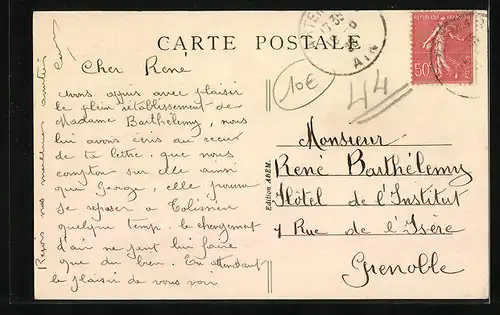 CARTE POSTALE
10€
44
REPUBLIQUE FRANCAISE
50c
17 35
AIN
Edition ADEM.
Cher René
Avons appris avec plaisir
le plein rétablissement de
Madame Barthélemy, nous
lui avons écris au reçu
de ta lettre. que nous
comptons sur elle ainsi
que Serge, elle pourra
se reposer à
quelque temps. le changement
d'air ne peut lui faire
que du bien. En attendant
le plaisir de vous voir
Reçois nos meilleures amitiés
Monsieur
René Barthélemy
Hôtel de l'Institut
1 Rue de l'Isère
Grenoble